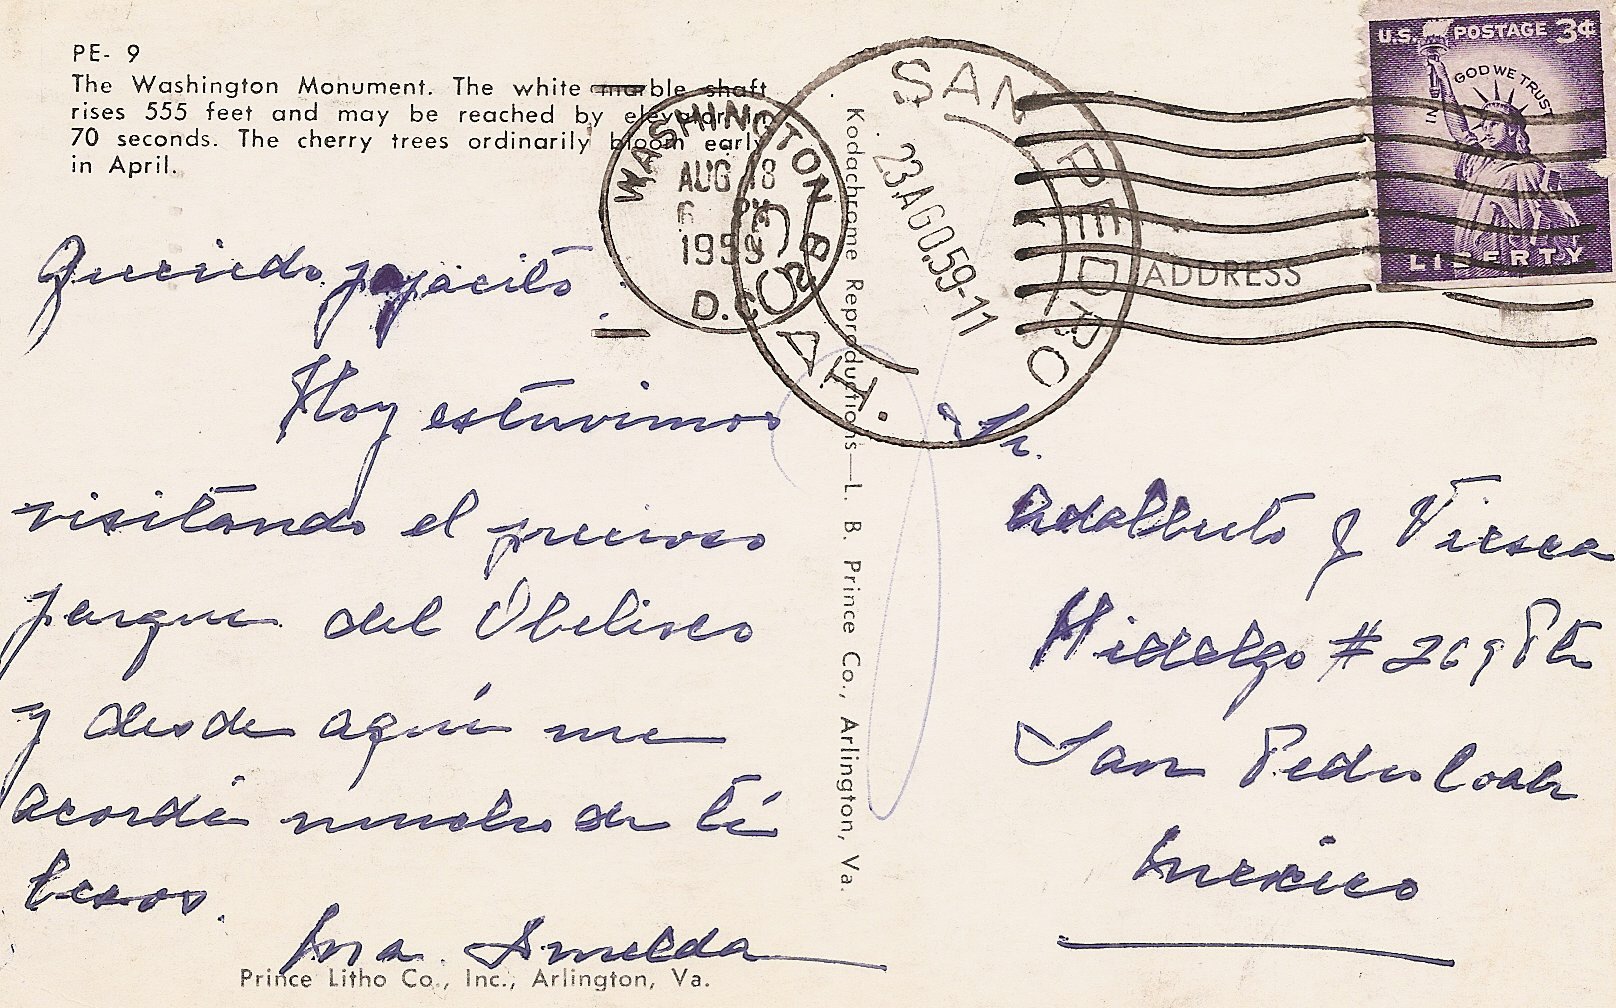 PE- 9
The Washington Monument. The white marble shaft
rises 555 feet and may be reached by elevator in
70 seconds. The cherry trees ordinarily bloom early
in April.
WASHINGTON
AUG 18
6 PM
1959
D.C.
SAN PEDRO
COAH.
23.AGO.59-11
U.S. POSTAGE 3¢
IN GOD WE TRUST
LIBERTY
ADDRESS
Querido papacito:
Hoy estuvimos
visitando el precioso
parque del Obelisco
y desde aquí me
acordé mucho de tí
besos.
Ma. Imelda
Kodachrome Reproductions—L. B. Prince Co., Arlington, Va.
Sr.
Adalberto J Viesca
Hidalgo # 269 Pte
San Pedro Coah
Mexico
Prince Litho Co., Inc., Arlington, Va.